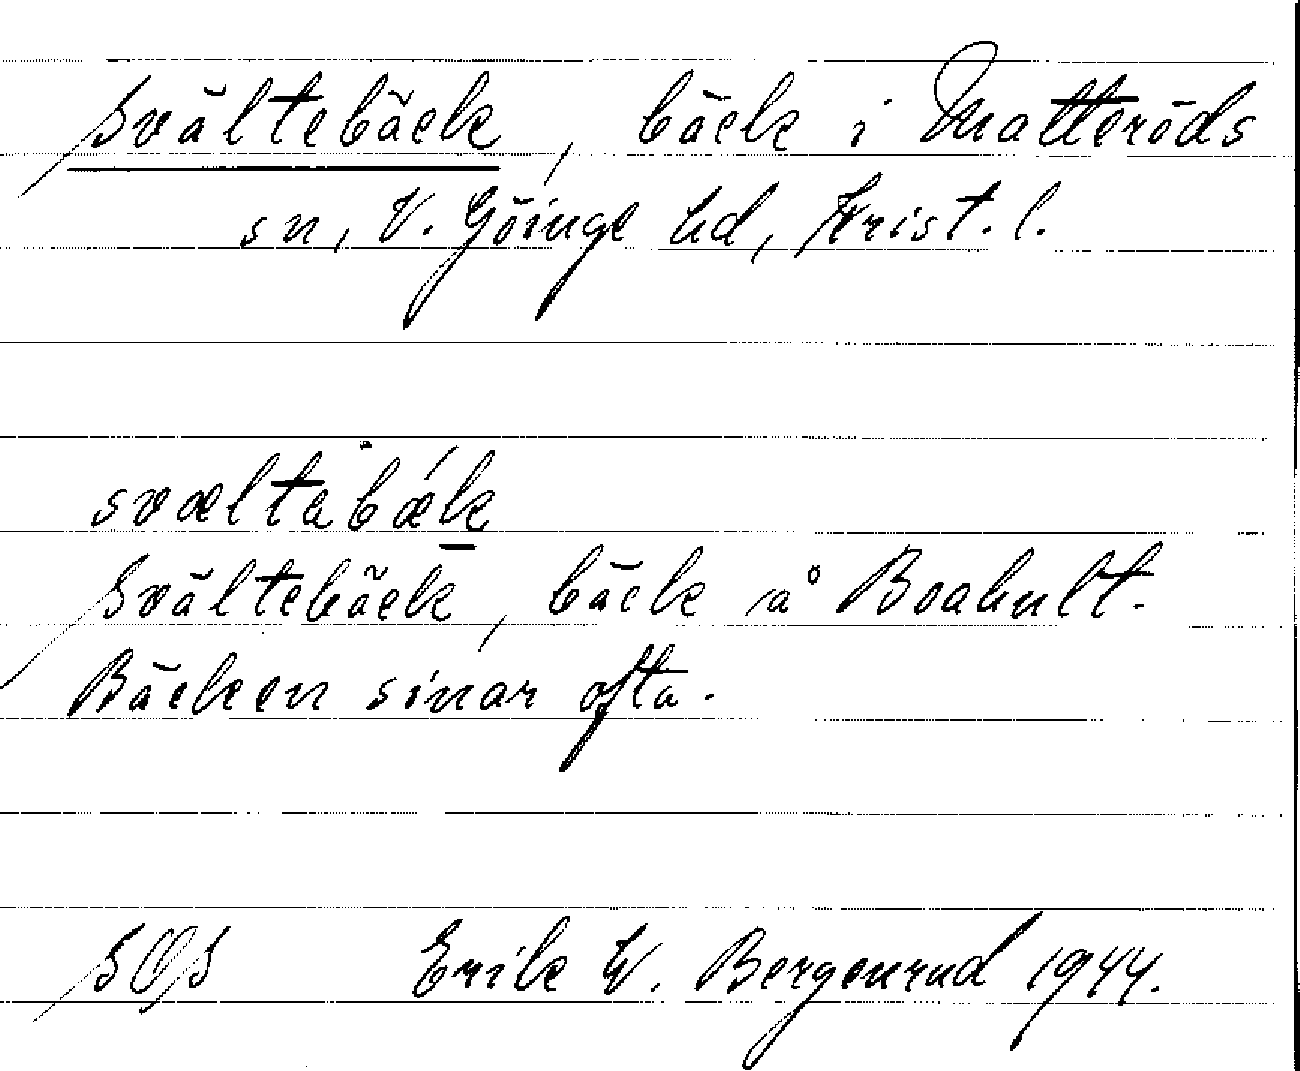 Svältebäck, bäck i Matteröds
sn, V. Göinge hd, Krist. l.
svæltabæ̀k
Svältebäck, bäck å Boahult.
Bäcken sinar ofta.
SOS Erik W. Bergenrud 1944.